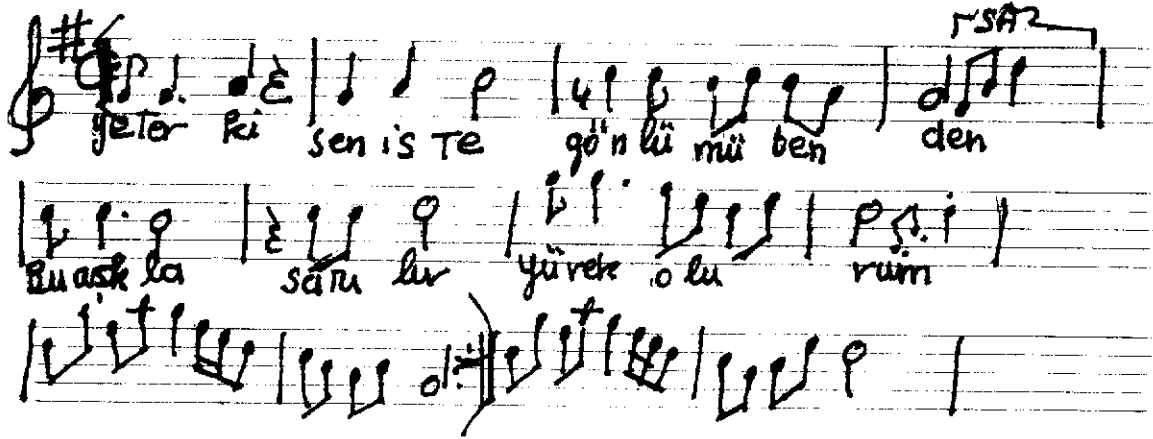 SAZ
yeter ki sen is Te gö'n lü mü ben den
Bu aşk la sarı lır yürek o lu rum